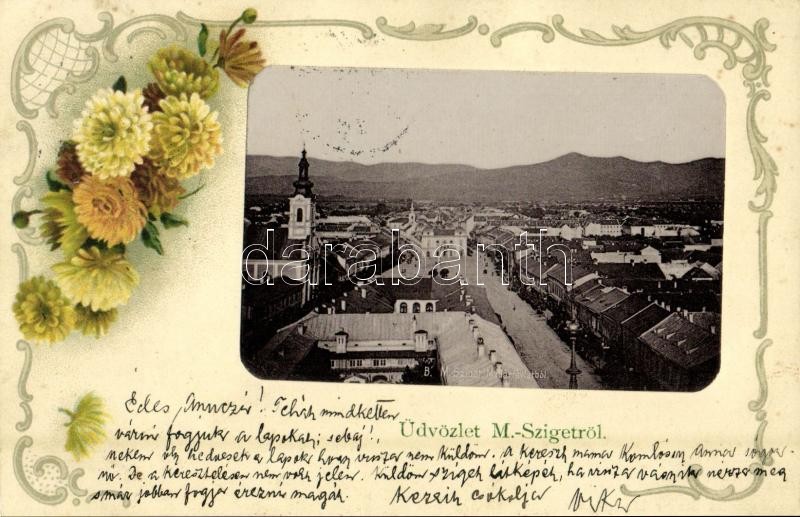 darabanth
B. M. Sziget
Üdvözlet M.-Szigetről.
Édes Anuczér! Tehát mindketten
várni fogjuk a lapokat; sebaj!,
nekem úgy kedvesek a lapok hogy vissza nem küldöm. A kereszt mama Komlóssy Anna
De a keresztelésen nem volt jelen. Küldöm sziget látképét, ha vissza
már jobban fogja érezni magát. Kezeit csókolja